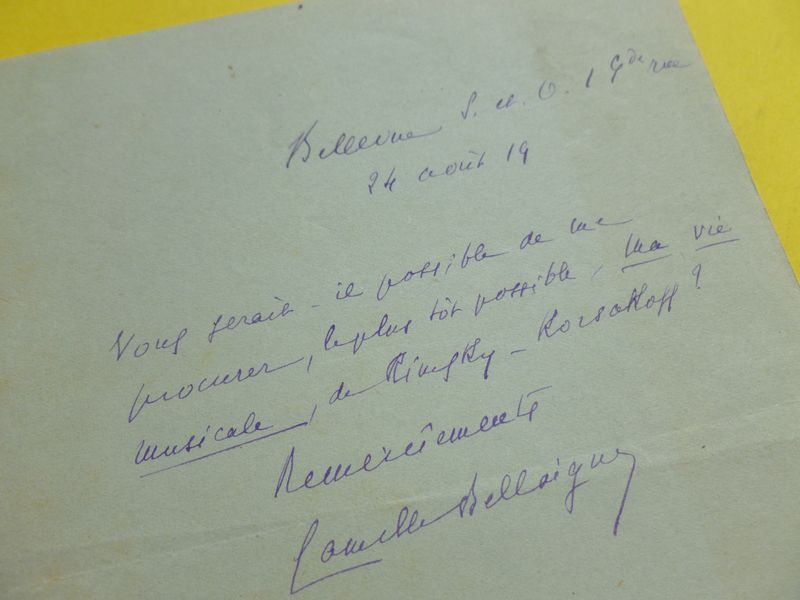 Bellevue S. et O. 1 Gde rue
24 août 19
Vous serait-il possible de me
procurer, le plus tôt possible, ma vie
musicale, de Rimsky-Korsakoff?
Remerciements
Camille Bellaigue